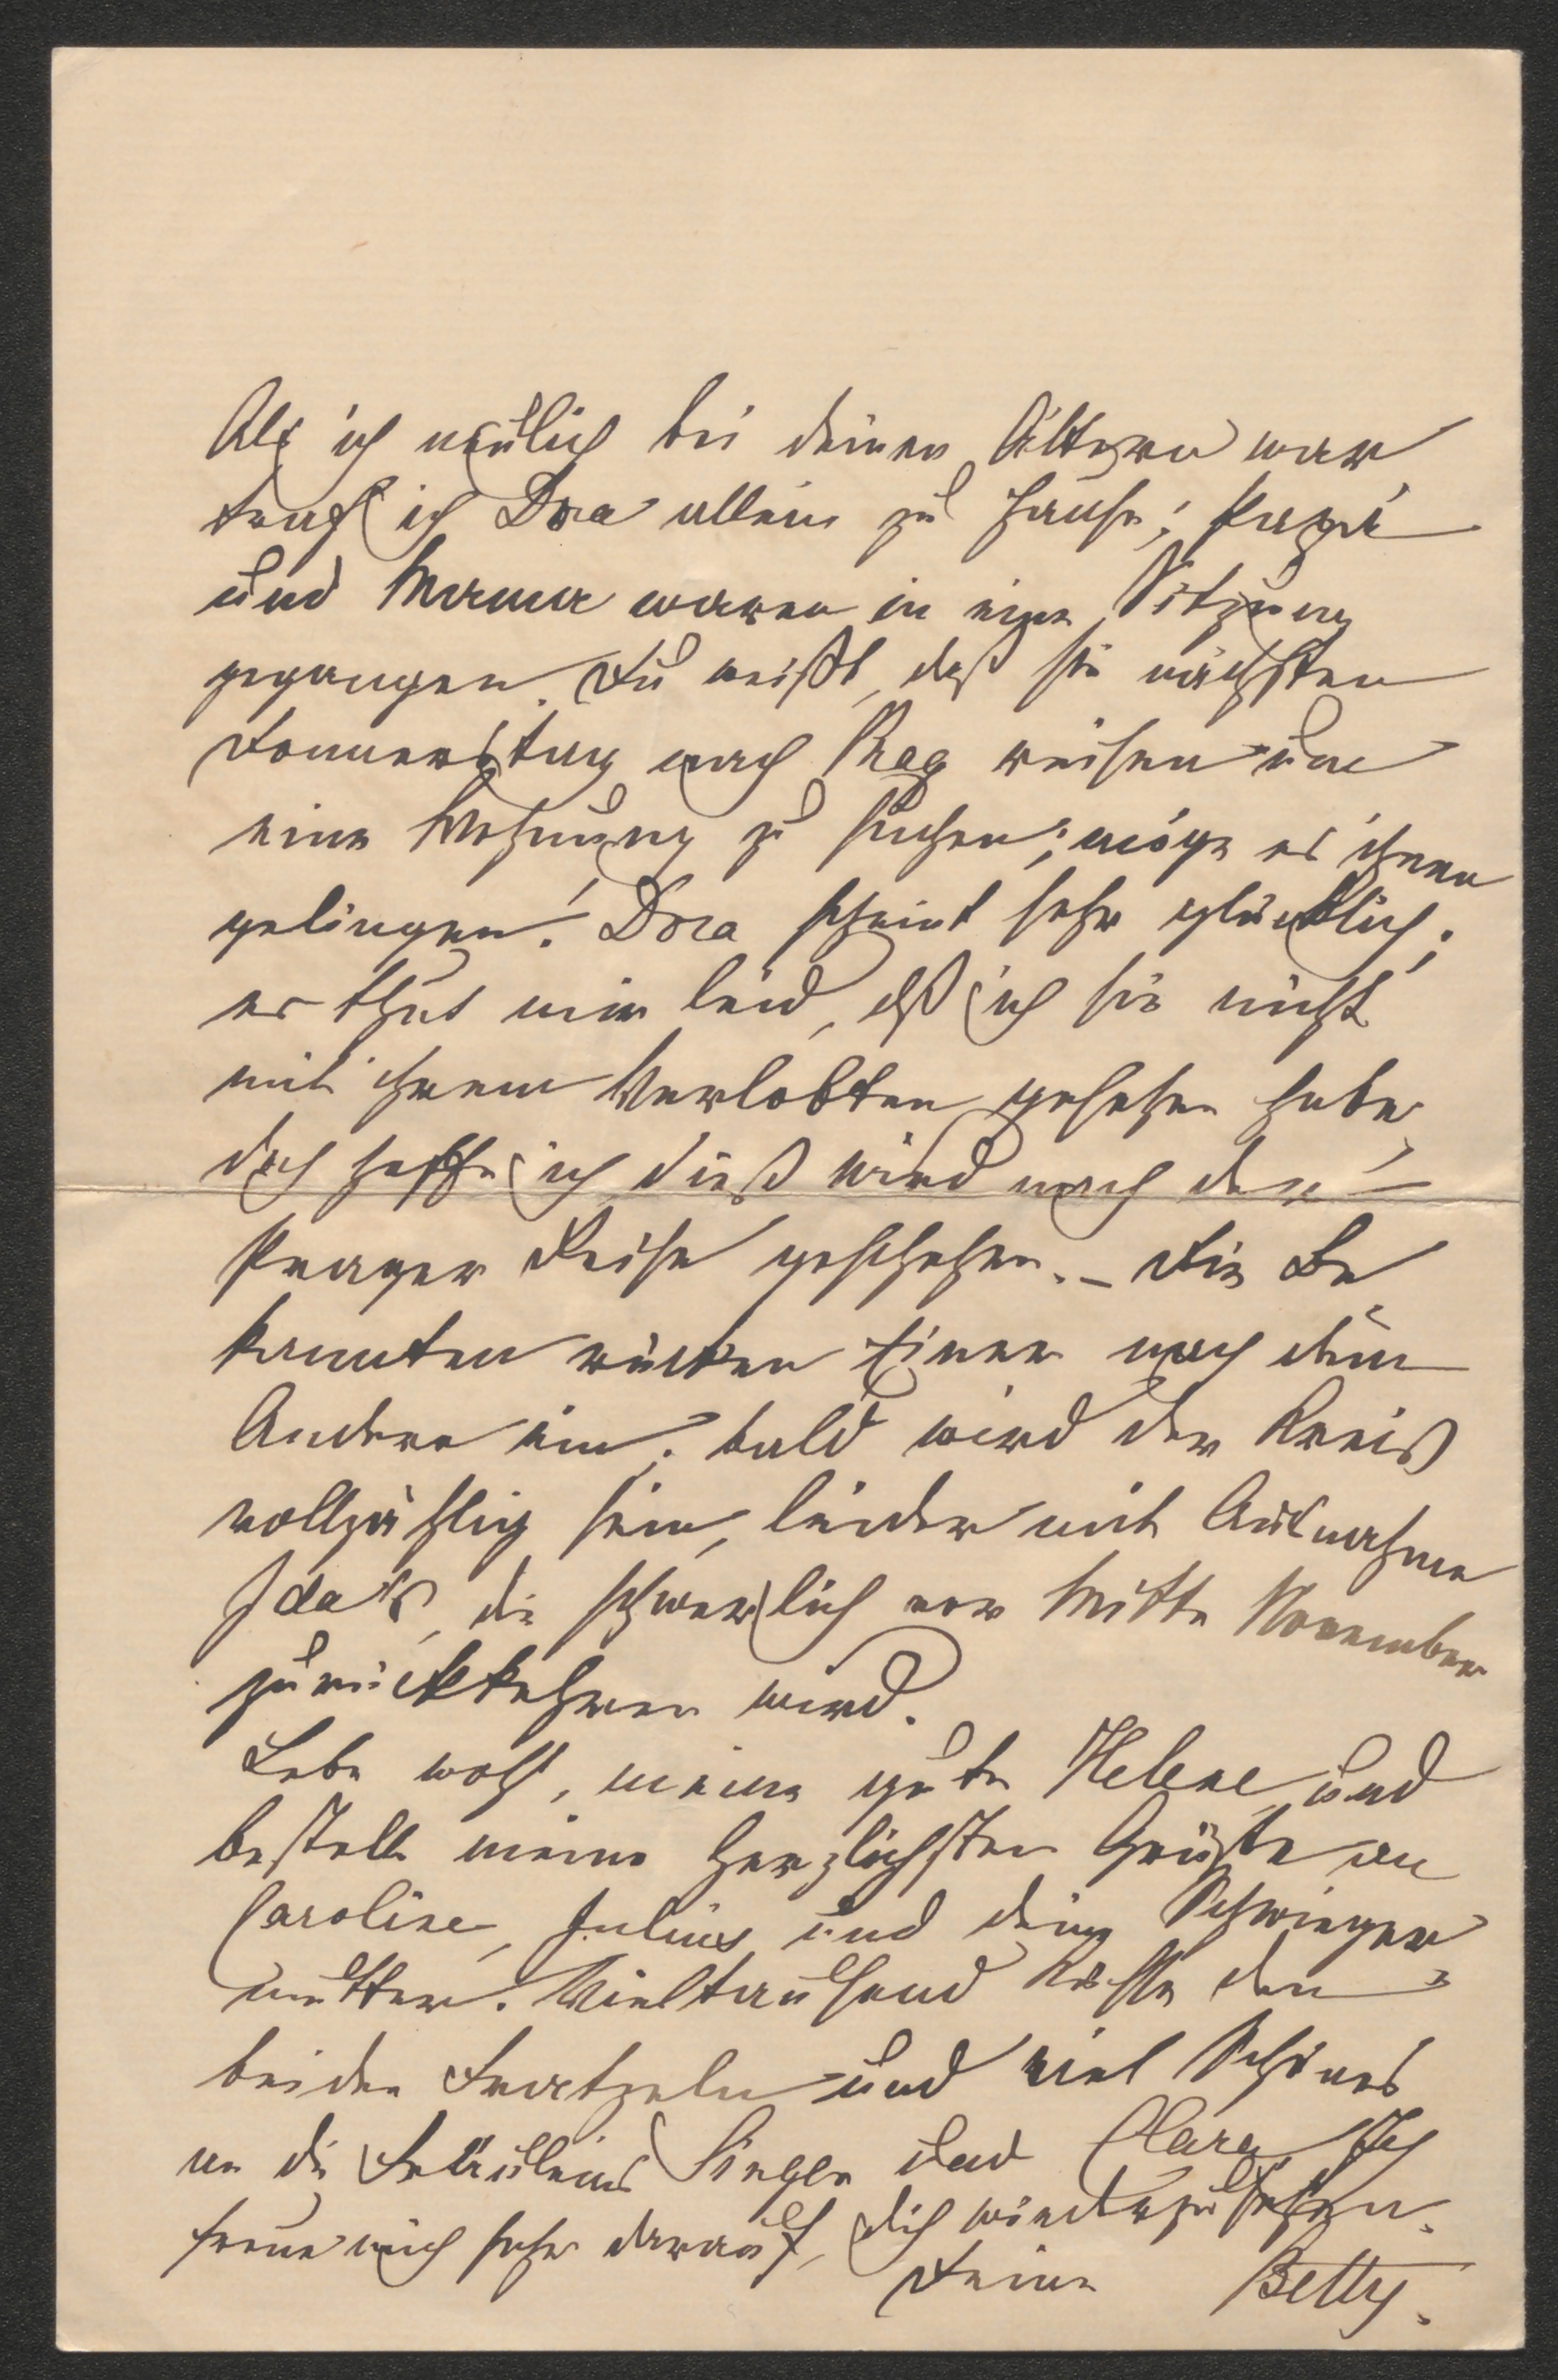 Als ich neulich bei deinen Ältern war
traf ich Dora allein zu Hause; Papa
und Mama waren in eine Sitzung
gegangen. Du weißt, daß sie nächsten
Donnerstag nach Prag reisen um
eine Wohnung zu suchen; möge es ihnen
gelingen! Dora scheint sehr glücklich;
es thut mir leid, dß ich sie nicht
mit ihrem Verlobten gesehen habe,
doch hoffe ich dieß wird nach der
Prager Reise geschehen. – Die Be
kannten rücken Einer nach dem
Andern ein; bald wird der Kreis
vollzählig sein, leider mit Ausnahme
Ida's, die schwerlich vor Mitte November
zurückkehren wird.
Lebe wohl, meine gute Helene und
bestelle meine herzlichsten Grüße an
Caroline, Julius und deine Schwieger
mutter. Vieltausend Küsse den
beiden Fratzeln und viel Schönes
an die Fräuleins Singer und Clara. Ich
freue mich sehr darauf, dich wiederzusehen.
Deine Betty.